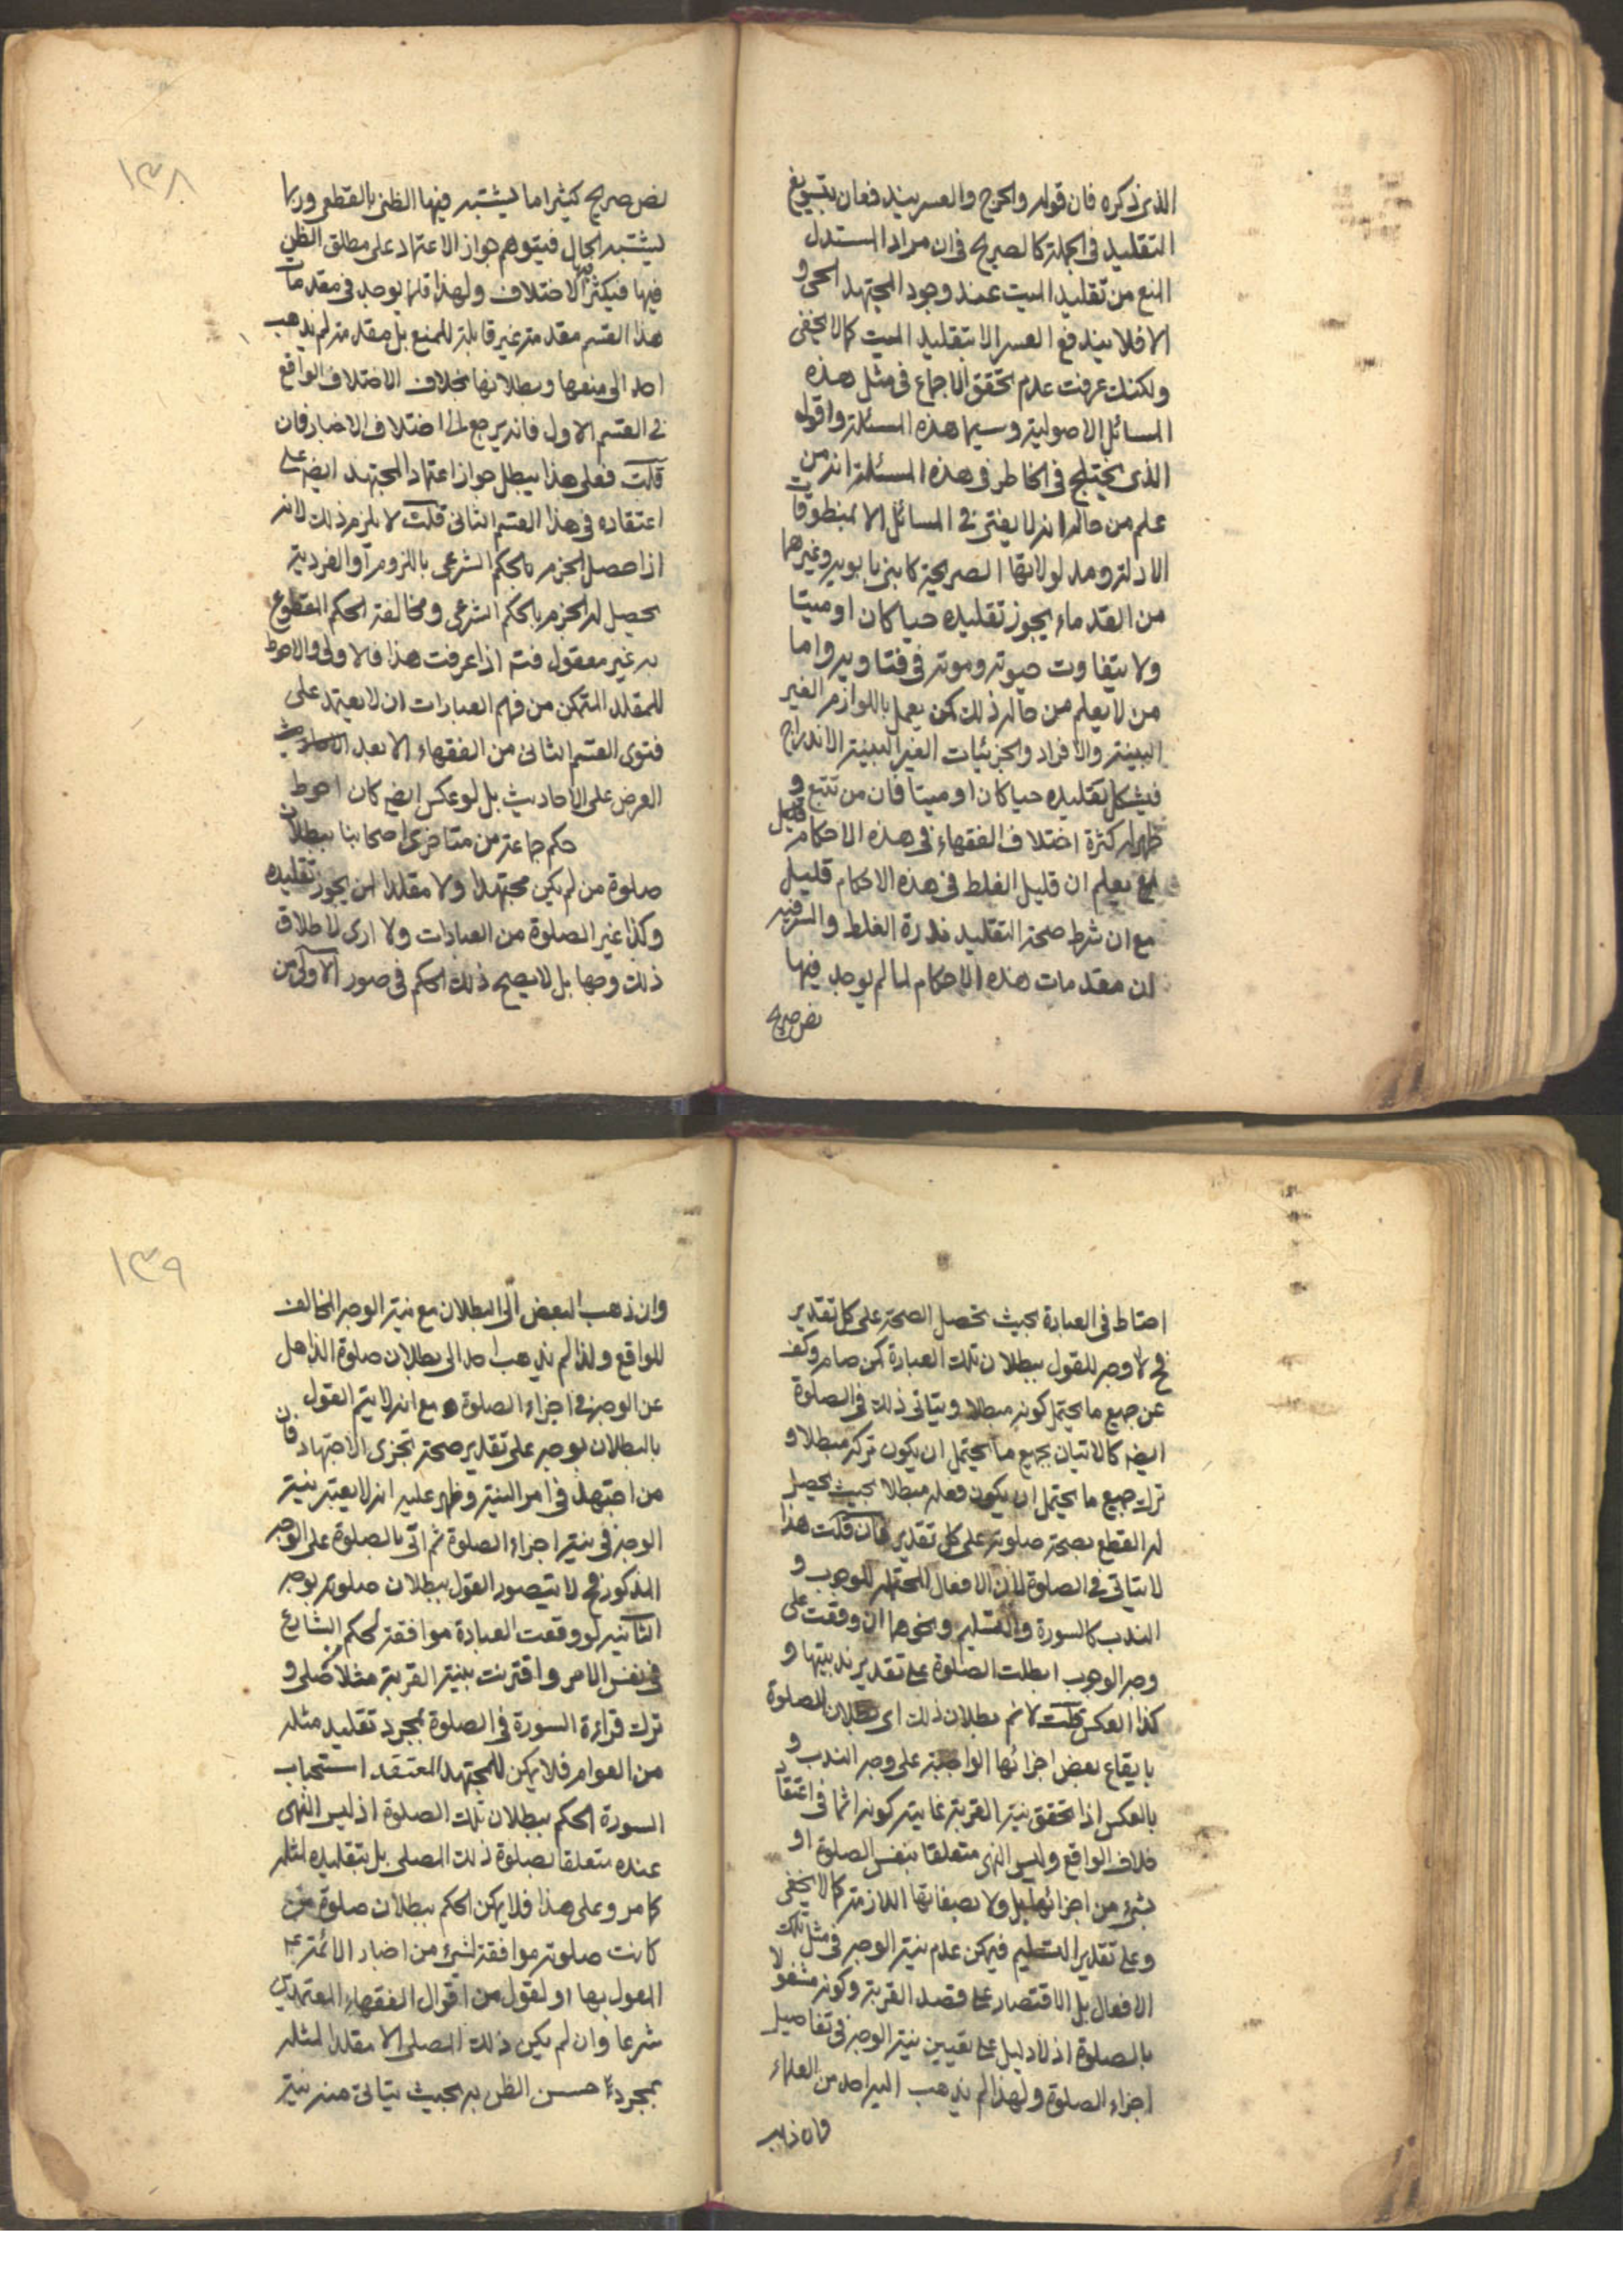 الذى ذكره فان قوله والحرج والعسر يندفعان بتسويغ
التقليد فى الجملة كالصريح فى ان مراد المستدل
المنع من تقليد الميت عند وجود المجتهد الحى و
الا فلا يندفع العسر الا بتقليد الميت كما لا يخفى
ولكنك عرفت عدم تحقق الاجماع فى مثل هذه
المسائل الاصولية وسيما هذه المسئلة واقول
الذى يختلج فى الخاطر فى هذه المسئلة انه من
علم من حاله انه لا يفتى فى المسائل الا بمنطوقات
الادلة ومدلولاتها الصريحة كابنى بابويه وغيرهما
من القدماء يجوز تقليده حيا كان او ميتا
ولا يتفاوت حيوته وموته فى فتاويه واما
من لا يعلم من حاله ذلك كمن يعمل باللوازم الغير
البينة والافراد والجزئيات الغير البينة الاندراج
فيشكل تقليده حيا كان او ميتا فان من تتبع و
ظهر له كثرة اختلاف الفقهاء فى هذه الاحكام
يعلم ان قليل الغلط فى هذه الاحكام قليل
مع ان شرط صحة التقليد ندرة الغلط والسر فيه
ان مقدمات هذه الاحكام لما لم يوجد فيها
نص صريح
١٣٨
نص صريح كثيرا ما يشتبه فيها الظنى بالقطعى وربما
يشتبه الحال فيتوهم جواز الاعتماد على مطلق الظن
فيها فيكثر فيها الاختلاف ولهذا قلما يوجد فى مقدمات
هذا القسم مقدمة غير قابلة للمنع بل مقدمة لم يذهب
احد الى منعها وبطلانها بخلاف الاختلاف الواقع
فى القسم الاول فانه يرجع الى اختلاف الاخبار فان
قلت فعلى هذا يبطل جواز اعتماد المجتهد ايضا على
اعتقاده فى هذا القسم الثانى قلت لا يلزم ذلك لانه
اذا حصل الجزم بالحكم الشرعى باللزوم او الفردية
يحصل له الجزم بالحكم الشرعى ومخالفة الحكم المقطوع
به غير معقول فتم اذا عرفت هذا فالاولى والاحوط
للمقلد المتمكن من فهم العبارات ان لا يعتمد على
فتوى القسم الثانى من الفقهاء الا بعد
العرض على الاحاديث بل لو عكس ايضا كان احوط
حكم جماعة من متاخرى اصحابنا ببطلان
صلوة من لم يكن مجتهدا ولا مقلدا لمن يجوز تقليده
وكذا غير الصلوة من العبادات ولا ارى لاطلاق
ذلك وجها بل لا يصح ذلك الحكم فى صور الاولى من
احتاط فى العبادة بحيث تحصل الصحة على كل تقدير
فح لا وجه للقول ببطلان تلك العبادة كمن صام وكف
عن جميع ما يحتمل كونه مبطلا ويتاتى ذلك فى الصلوة
ايضا كالاتيان بجميع ما يحتمل ان يكون تركه مبطلا و
ترك جميع ما يحتمل ان يكون فعله مبطلا بحيث يحصل
له القطع بصحة صلوته على كل تقدير فان قلت هذا
لا يتاتى فى الصلوة لان الافعال المحتملة للوجوب و
الندب كالسورة والتسليم ونحوها ان وقعت على
وجه الوجوب ابطلت الصلوة على تقدير ندبيتها و
كذا العكس قلت لا نم بطلان ذلك اى بطلان الصلوة
بايقاع بعض اجزائها الواجبة على وجه الندب و
بالعكس اذا تحقق نية القربة غايته كونه اثما فى اعتقاد
خلاف الواقع وليس النهى متعلقا بنفس الصلوة او
بشىء من اجزائها بل ولا بصفاتها اللازمة كما لا يخفى
وعلى تقدير التسليم فيمكن عدم نية الوجه فى مثل تلك
الافعال بل الاقتصار على قصد القربة وكونه مشغولا
بالصلوة اذ لا دليل على تعيين نية الوجه فى تفاصيل
اجزاء الصلوة ولهذا لم يذهب اليه احد من العلماء
١٣٩
وان ذهب البعض الى البطلان مع نية الوجه المخالف
للواقع ولذا لم يذهب احد الى بطلان صلوة الذاهل
عن الوجه فى اجزاء الصلوة مع انه لا يتم القول
بالبطلان بوجه على تقدير صحة تجزى الاجتهاد فان
من اجتهد فى امر النية وظهر عليه انه لا يعتبر نية
الوجه فى نية اجزاء الصلوة ثم اتى بالصلوة على الوجه
المذكور فح لا يتصور القول ببطلان صلوته بوجه
الثانية لو وقعت العبادة موافقة لحكم الشارع
فى نفس الامر واقترنت بنية القربة مثلا من صلى و
ترك قراءة السورة فى الصلوة بمجرد تقليد مثله
من العوام فلا يمكن للمجتهد المعتقد استحباب
السورة الحكم ببطلان تلك الصلوة اذ ليس النهى
عنده متعلقا بصلوة ذلك المصلى بل بتقليده لمثله
كما مر وعلى هذا فلا يمكن الحكم ببطلان صلوة من
كانت صلوته موافقة لشىء من اخبار الائمة ع
المعول بها او لقول من اقوال الفقهاء المعتمدين
شرعا وان لم يكن ذلك المصلى الا مقلدا لمثله
بمجرد حسن الظن به بحيث يتاتى منه نية